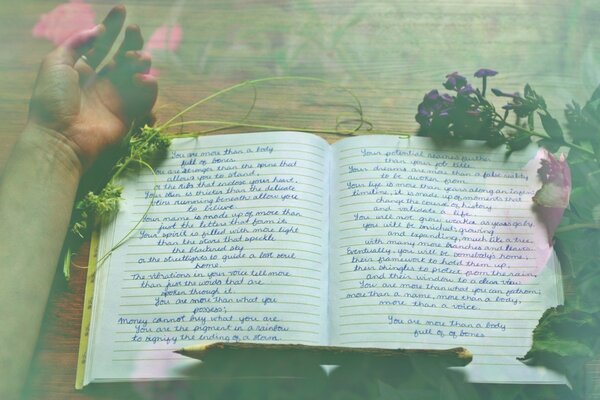 You are more than a body
full of bones.
You are stronger than the spine that
allows you to stand,
or the ribs that endose your heart.
Your is thicker than the delicate
veins running beneath allow you
to believe.
Your name is made up of more than
just the letters that form it.
Your spirit is filled with more light
than the stars that speckle
the blackened sky
or the streetlights to guide a lost soul
home.
The vibrations in your voice tell more
than just the words that are
spoken through it.
You are more than what you
possess;
Money cannot buy what you are.
You are the pigment in a rainbow
to signify the ending of a storm.
Your potential reaches further
than your
Your dreams are more than a false reality
to be told.
Your life is more than years along an
timeline, it is made up of moments that
change the course of history
and validate a life.
You will not grow weaker as years go by,
you will be growing
and expanding, much like a tree,
with many more branches and leaves.
Eventually, you will be somebody's home,
their framework to hold them up,
their shingles to protect from the rain,
and their window to a clear day.
You are more than what you can fathom,
more than a name, more than a body,
more than a voice.
You are more than a body
full of of bones.